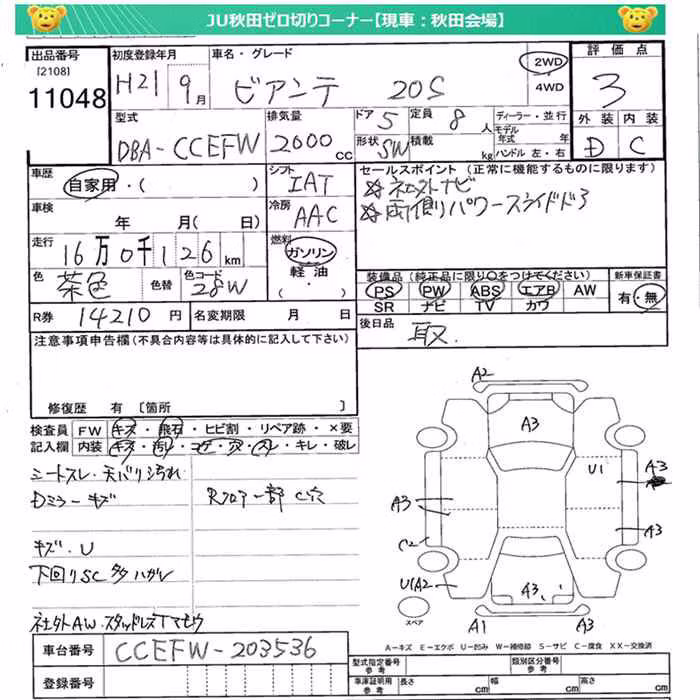 JU秋田ゼロ切りコーナー【現車：秋田会場】
出品番号
[2108]
11048
初度登録年月
H21 9月
車名・グレード
ビアンテ 20S
2WD
4WD
評価点
3
外装 内装
D C
型式
DBA-CCEFW
排気量
2000cc
ドア 5
定員 8人
形状 SW
積載 kg
ディーラー・並行
モデル年式 年
ハンドル 左・右
車歴
自家用・( )
シフト
IAT
セールスポイント (正常に機能するものに限ります)
☆社外ナビ
☆両側パワースライドドア
車検
年 月( 日)
冷房
AAC
走行
16万0千126km
燃料
ガソリン
軽油
( ・ )
色
茶色
色替
色コード
28W
装備品 (純正品に限り○をつけてください)
PS PW ABS エアB AW
SR ナビ TV カワ
新車保証書
有・無
R券 14210円
名変期限 月 日
後日品
取.
注意事項申告欄 (不具合内容等は具体的に記入して下さい)
修復歴 有 [箇所 ]
検査員記入欄
FW キズ・飛石・ヒビ割・リペア跡・×要
内装 キズ・汚レ・コゲ・穴・スレ・キレ・破レ
シートスレ・天バリ汚れ
Dミラーキズ
Rフロアー部 C穴
キズ・U
下回りSC多ハガレ
社外AW・スタッドレスTマモウ
A2
A3
U1
A3
A3
A3
C2
U1A2
A3
スペア
A1
A3
A-キズ E-エクボ U-凹み W-補修跡 S-サビ C-腐食 XX-交換済
車台番号
CCEFW-203536
登録番号
型式指定番号 参考
類別区分番号 参考
車庫証明用 参考
長さ cm
幅 cm
高さ cm